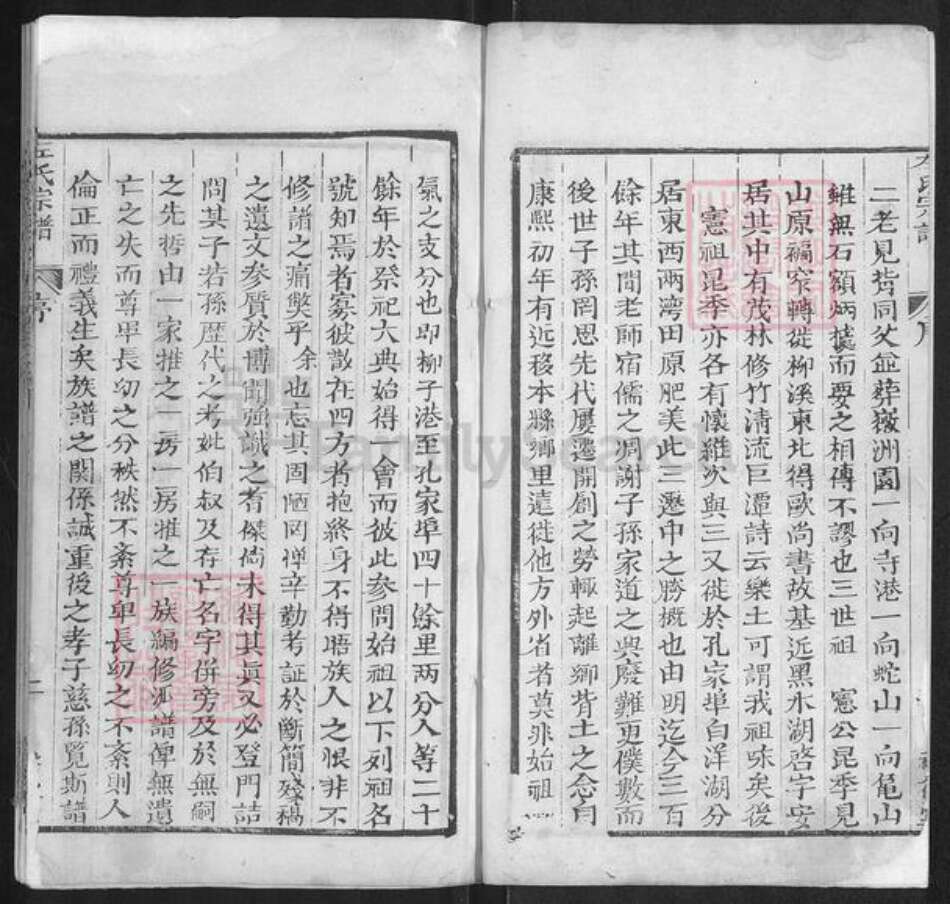 二老見背同父並葬嶽洲園一向寺港一向蛇山一向龜山
雖無石額炳據而要之相傳不謬也三世祖　憲公昆季見
山原褊窄轉徙柳溪東北得歐尚書故基近黑水湖咨字安
居其中有茂林修竹清流巨潭詩云樂土可謂我祖咏矣後
憲祖昆季亦各有懷維次與三又徙於孔家埠白洋湖分
居東西兩湾田原肥美此三遷中之勝概也由明迄今三百
餘年其間老師宿儒之凋謝子孫家道之興廢難更僕數而
後世子孫罔思先代屢遷開創之勞輒起離鄉背土之念自
康熙初年有近移本縣鄉里遠徙他方外省者莫非始祖一
氣之支分也即柳子港至孔家埠四十餘里两分人等二十
餘年於祭祀大典始得一會而彼此參問始祖以下列祖名
號知焉者寡彼散在四方者抱終身不得晤族人之恨非不
修譜之痛獘乎余也忘其固陋罔憚辛勤考証於斷簡殘稿
之遺文參質於博聞強識之者傑倘未得其眞又必登門詰
問其子若孫歷代之考妣伯叔及存亡名字併旁及於無嗣
之先哲由一家推之一房一房推之一族編修譜俾無遺
亡之失而尊卑長幼之分秩然不紊尊卑長幼之不紊則人
倫正而禮義生矣族譜之関係誠重後之孝子慈孫覧斯譜
左氏宗譜
序
二
FamilySearch